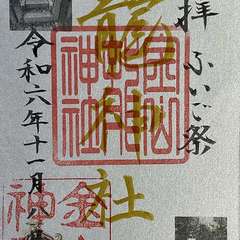 拝 ふいご祭
龍神社
金山
神社
令和六年十一月八日
金
神